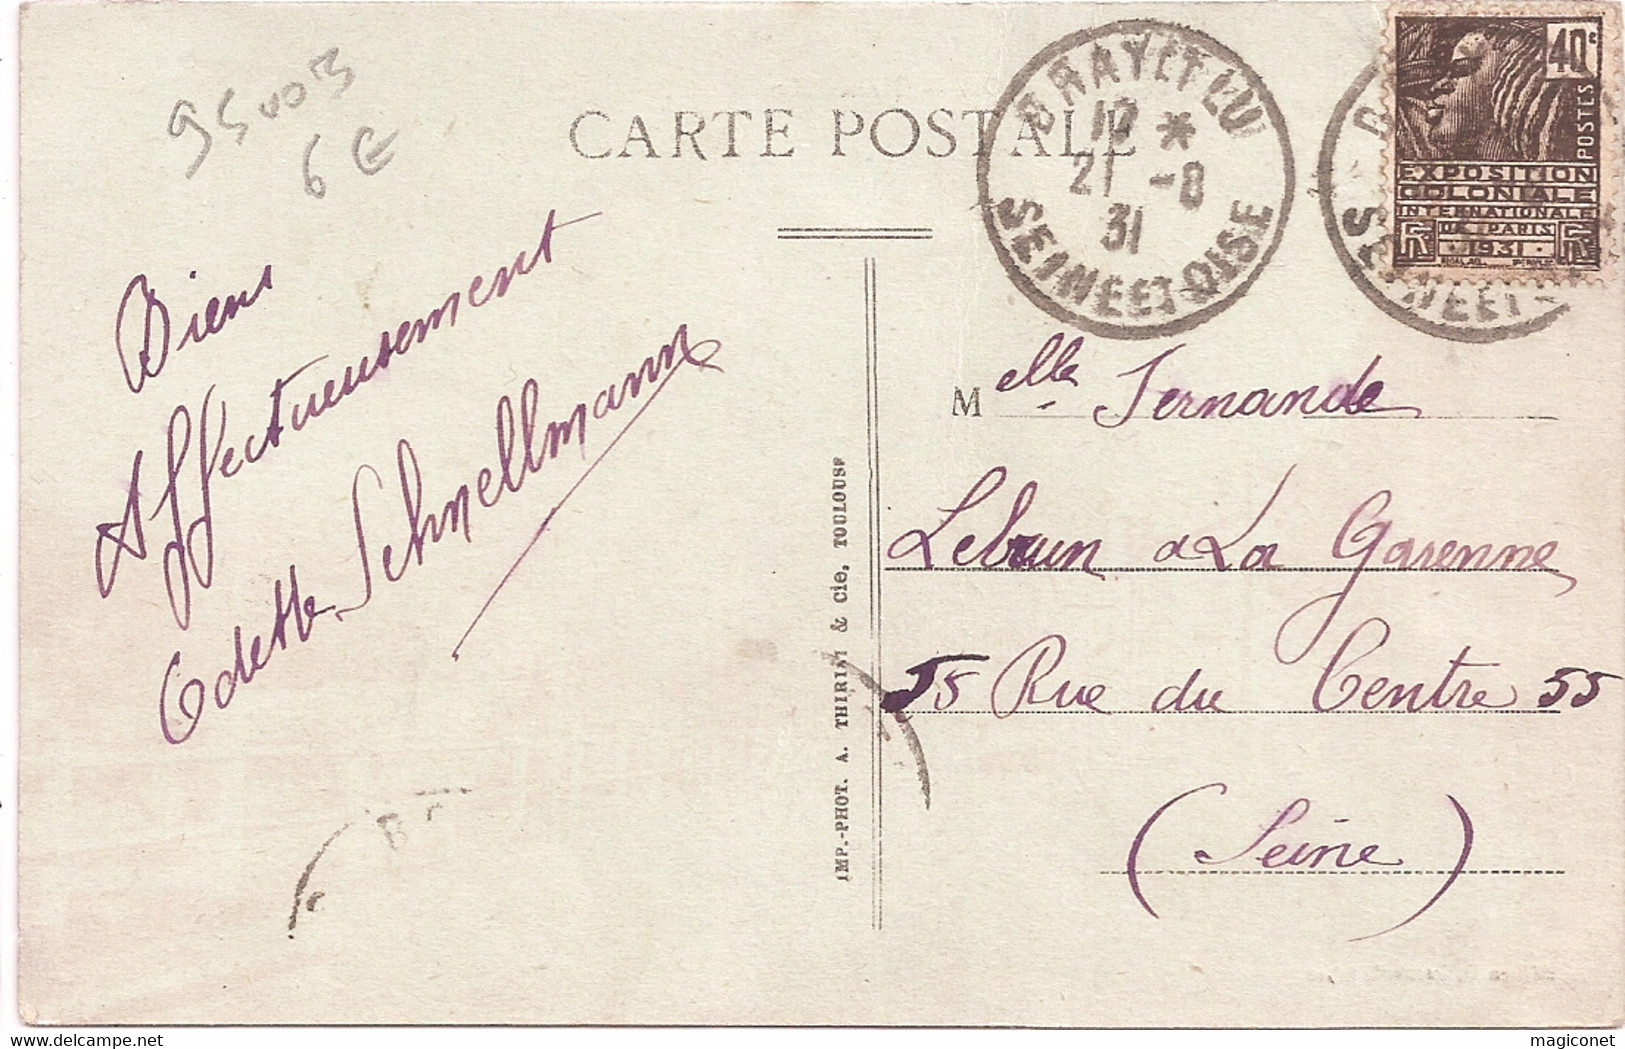 95003
6€
CARTE POSTALE
BRAY ET LU
17 *
21 -8
31
SEINE ET-OISE
40c
POSTES
EXPOSITION
COLONIALE
INTERNATIONALE
DE PARIS
1931
RF RF
Bien
Affectueusement
Odette Schnellmann
IMP.-PHOT. A. THIRIAT & Cie, TOULOUSE
Melle Fernande
Lebrun a La Garenne
55 Rue du Centre 55
(Seine)
magiconet